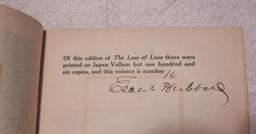 Of this edition of The Law of Love there were
printed on Japan Vellum but one hundred and
six copies, and this volume is number 14
Elbert Hubbard